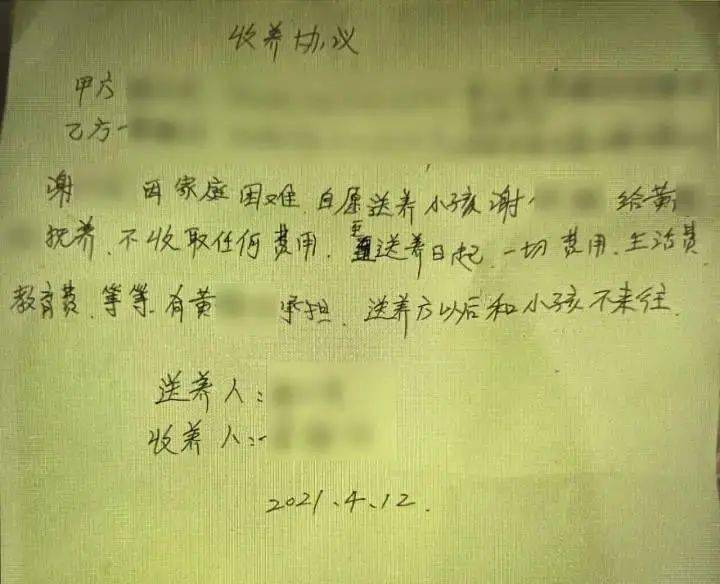 收养协议
甲方
乙方
谢 因家庭困难.自愿送养小孩谢 给黄
抚养、不收取任何费用. 送养日起、一切费用、生活费
教育费、等等、有黄 承担、送养方以后和小孩不来往.
送养人:
收养人:
2021、4、12.